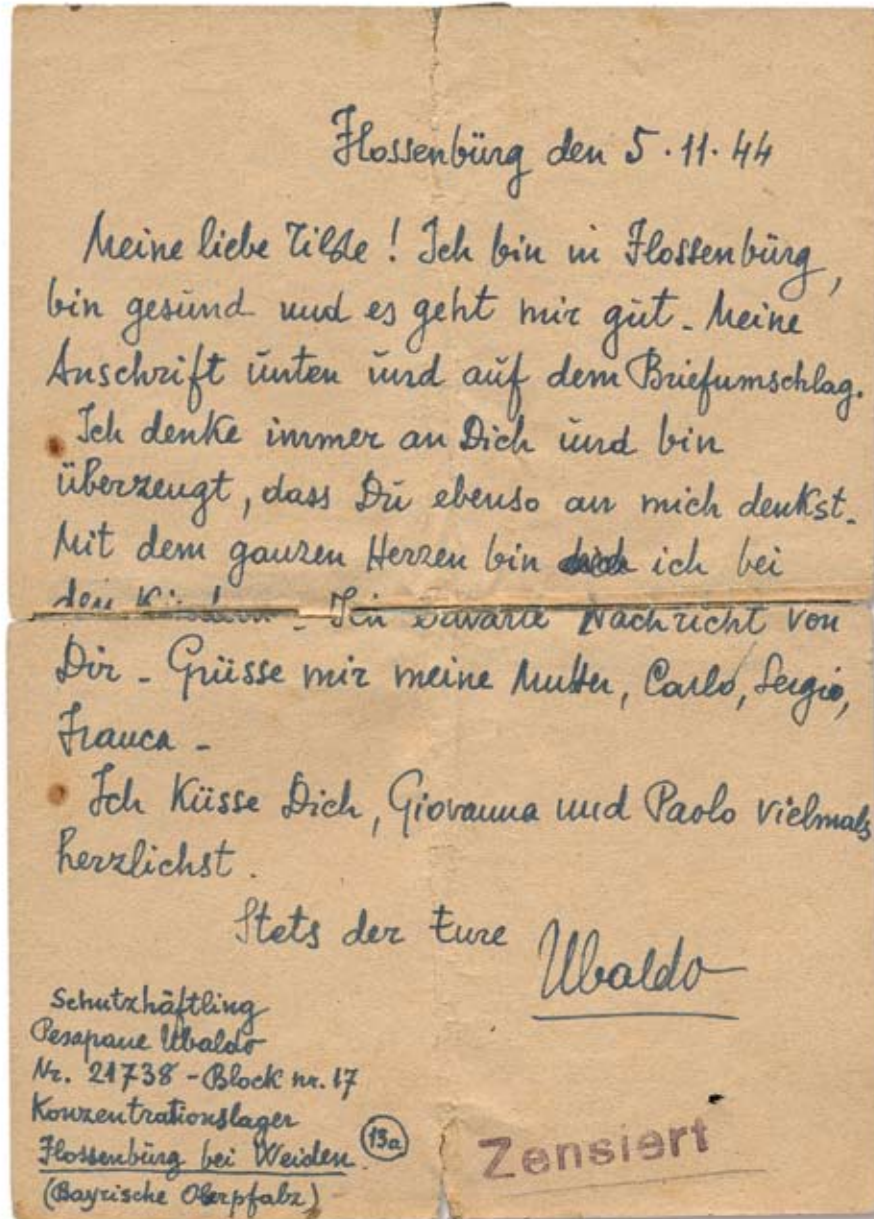 Flossenbürg den 5.11.44
Meine liebe Tilde! Ich bin in Flossenbürg,
bin gesund und es geht mir gut - Meine
Anschrift unten und auf dem Briefumschlag.
Ich denke immer an Dich und bin
überzeugt, dass Du ebenso an mich denkst -
Mit dem ganzen Herzen bin ich bei
den Kindern - Ich erwarte Nachricht von
Dir - Grüsse mir meine Mutter, Carlo, Sergio,
Franca -
Ich Küsse Dich, Giovanna und Paolo vielmals
herzlichst.
Stets der Eure
Ubaldo
Schutzhäftling
Pesapane Ubaldo
Nr. 21738 - Block nr. 17
Konzentrationslager
Flossenbürg bei Weiden 13a
(Bayrische Oberpfalz)
Zensiert